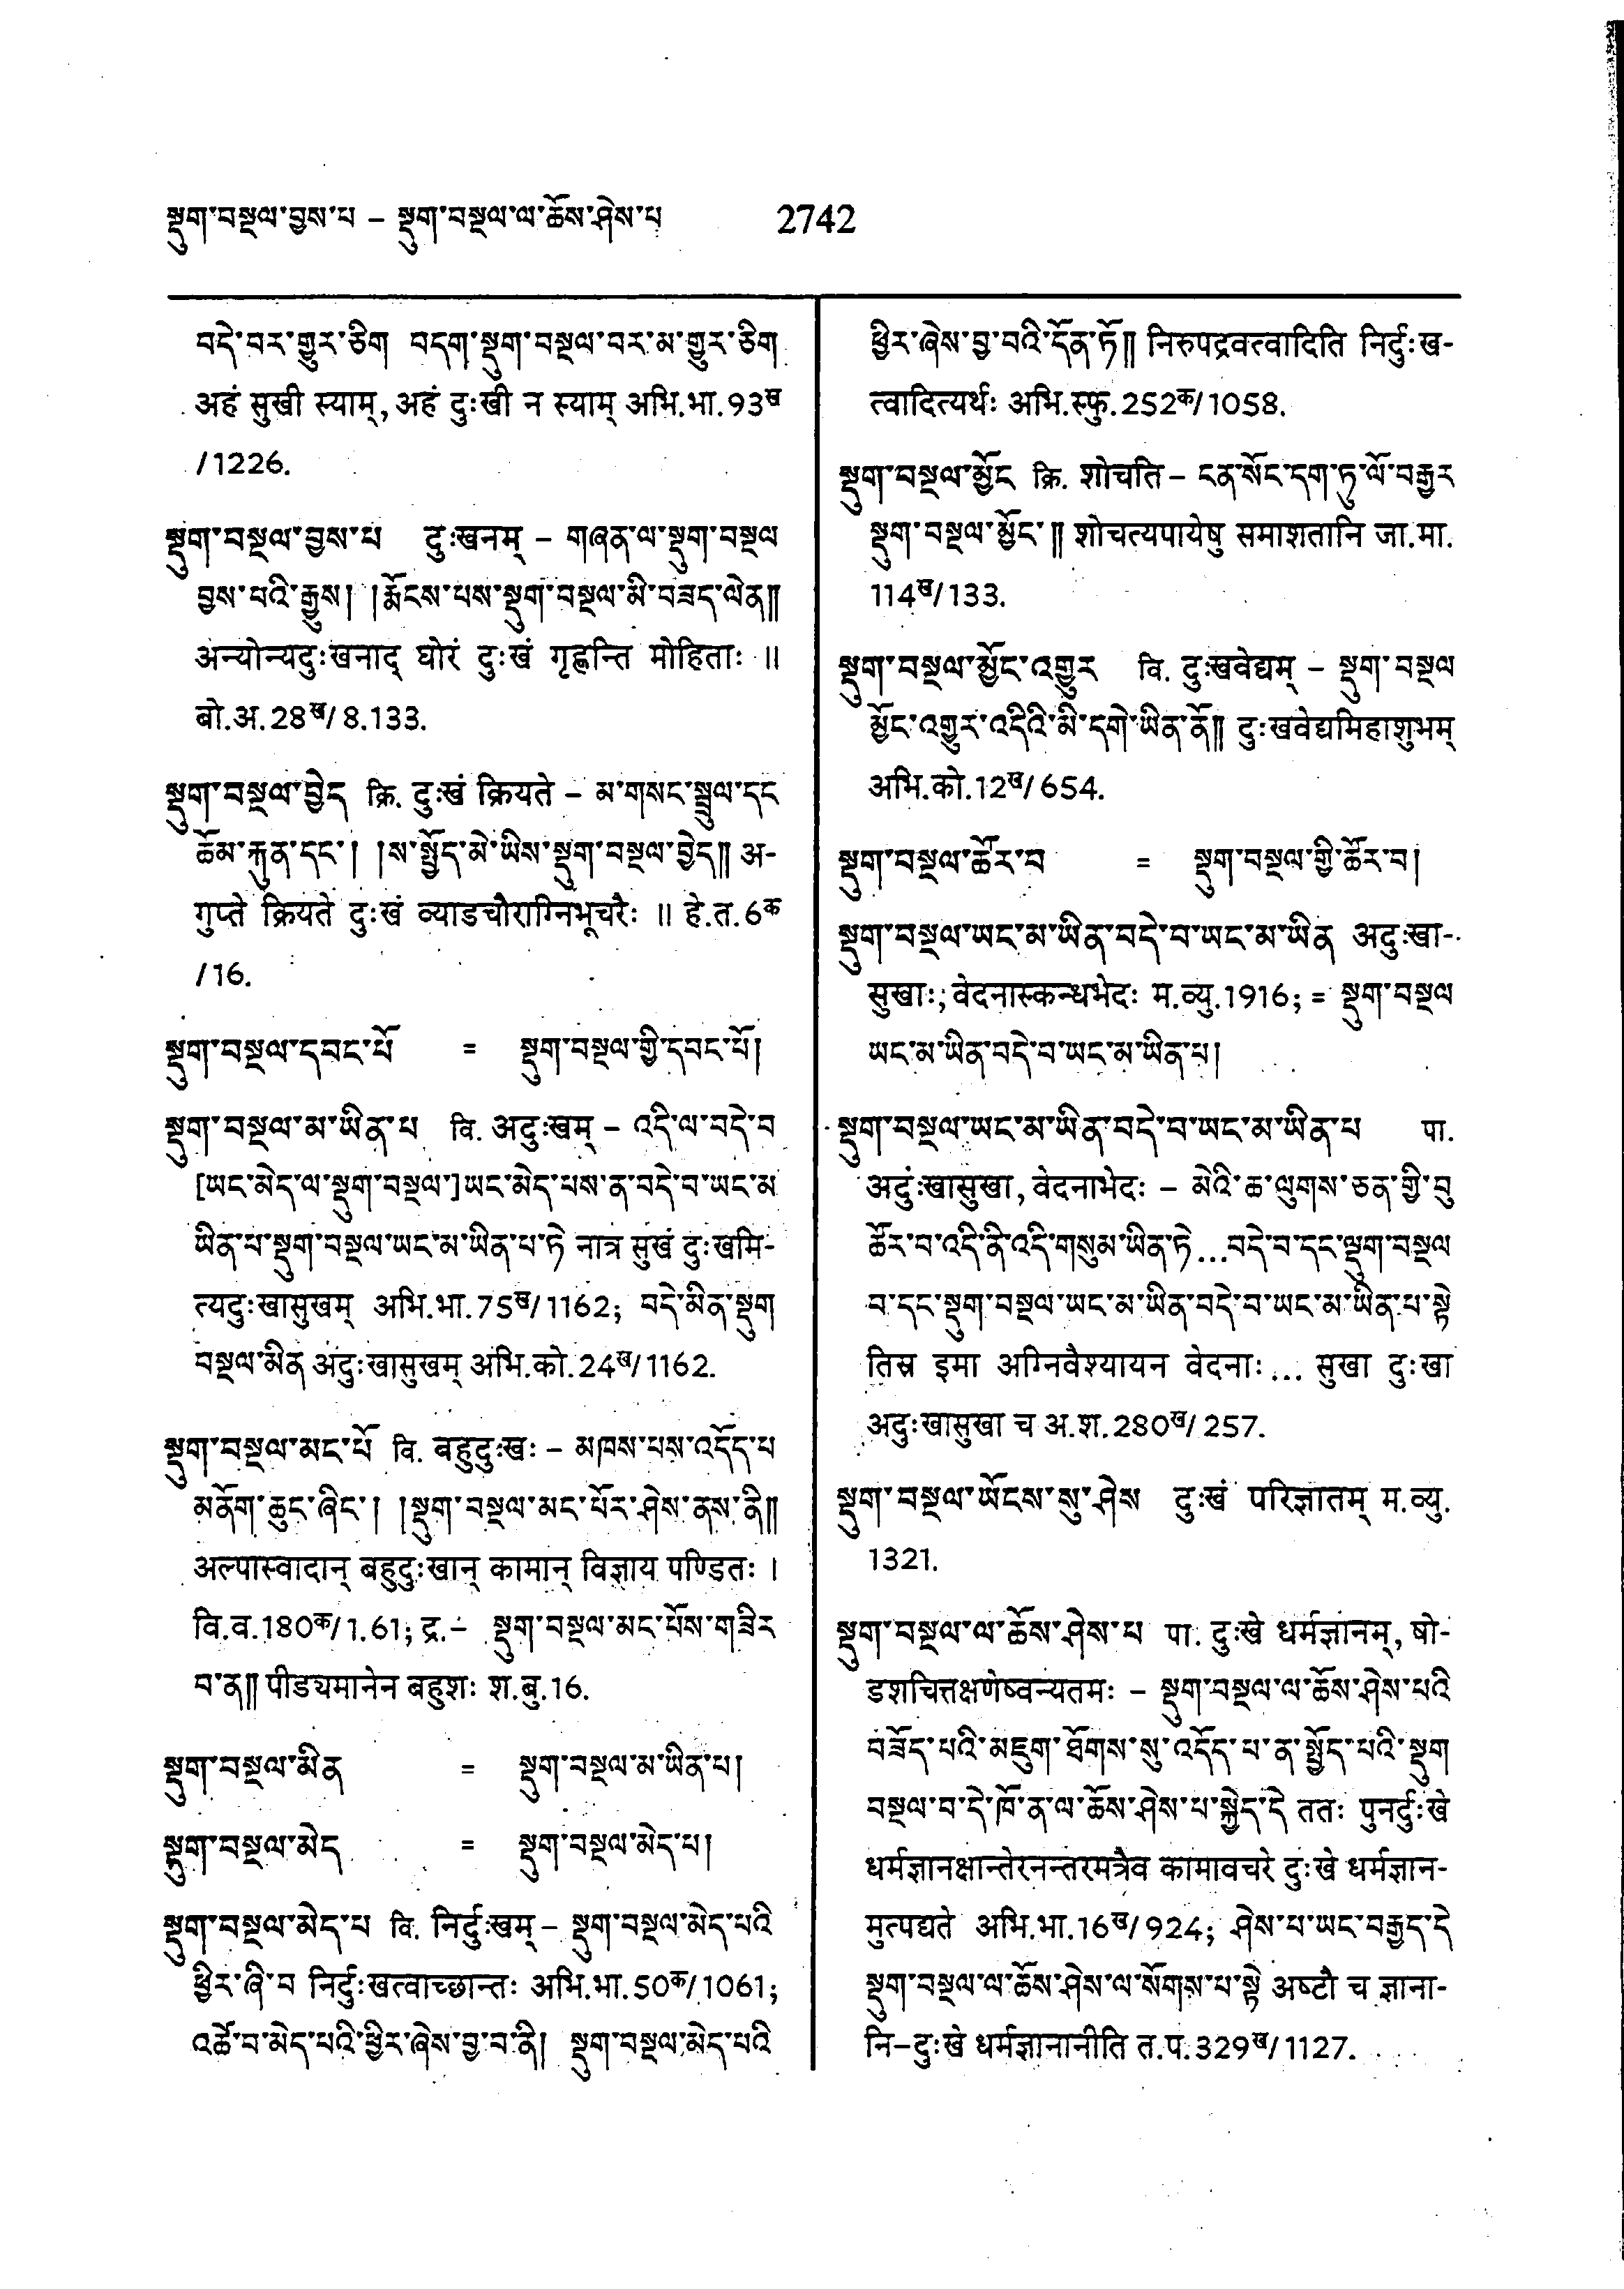 སྡུག་བསྔལ་བྱས་པ – སྡུག་བསྔལ་ལ་ཆོས་ཤེས་པ 2742
བདེ་བར་གྱུར་ཅིག བདག་སྡུག་བསྔལ་བར་མ་གྱུར་ཅིག
अहं सुखी स्याम्, अहं दुःखी न स्याम् अभि.भा.93ख
/1226.
སྡུག་བསྔལ་བྱས་པ दुःखनम् – གཞན་ལ་སྡུག་བསྔལ
བྱས་པའི་རྒྱུས། །རྨོངས་པས་སྡུག་བསྔལ་མི་བཟད་ལེན༎
अन्योन्यदुःखनाद् घोरं दुःखं गृह्णन्ति मोहिताः ॥
बो.अ.28ख/8.133.
སྡུག་བསྔལ་བྱེད क्रि. दुःखं क्रियते – མ་གསང་སྦྲུལ་དང
ཆོམ་རྐུན་དང་། །ས་སྤྱོད་མེ་ཡིས་སྡུག་བསྔལ་བྱེད༎ अ-
गुप्ते क्रियते दुःखं व्याडचौराग्निभूचरैः ॥ हे.त.6क
/16.
སྡུག་བསྔལ་དབང་པོ = སྡུག་བསྔལ་གྱི་དབང་པོ།
སྡུག་བསྔལ་མ་ཡིན་པ वि. अदुःखम् – འདི་ལ་བདེ་བ
[ཡང་མེད་ལ་སྡུག་བསྔལ་]ཡང་མེད་པས་ན་བདེ་བ་ཡང་མ
ཡིན་པ་སྡུག་བསྔལ་ཡང་མ་ཡིན་པ་ཏེ नात्र सुखं दुःखमि-
त्यदुःखासुखम् अभि.भा.75ख/1162; བདེ་མིན་སྡུག
བསྔལ་མིན अदुःखासुखम् अभि.को.24ख/1162.
སྡུག་བསྔལ་མང་པོ वि. बहुदुःखः – མཁས་པས་འདོད་པ
མནོག་ཆུང་ཞིང་། །སྡུག་བསྔལ་མང་པོར་ཤེས་ནས་ནི༎
अल्पास्वादान् बहुदुःखान् कामान् विज्ञाय पण्डितः ।
वि.व.180क/1.61; द्र.– སྡུག་བསྔལ་མང་པོས་གཟིར
བ་ན༎ पीड्यमानेन बहुशः श.बु.16.
སྡུག་བསྔལ་མིན = སྡུག་བསྔལ་མ་ཡིན་པ།
སྡུག་བསྔལ་མེད = སྡུག་བསྔལ་མེད་པ།
སྡུག་བསྔལ་མེད་པ वि. निर्दुःखम् – སྡུག་བསྔལ་མེད་པའི
ཕྱིར་ཞི་བ निर्दुःखत्वाच्छान्तः अभि.भा.50क/1061;
འཚེ་བ་མེད་པའི་ཕྱིར་ཞེས་བྱ་བ་ནི། སྡུག་བསྔལ་མེད་པའི
ཕྱིར་ཞེས་བྱ་བའི་དོན་ཏོ༎ निरुपद्रवत्वादिति निर्दुःख-
त्वादित्यर्थः अभि.स्फु.252क/1058.
སྡུག་བསྔལ་མྱོང क्रि. शोचति – ངན་སོང་དག་ཏུ་ལོ་བརྒྱར
སྡུག་བསྔལ་མྱོང་༎ शोचत्यपायेषु समाशतानि जा.मा.
114ख/133.
སྡུག་བསྔལ་མྱོང་འགྱུར वि. दुःखवेद्यम् – སྡུག་བསྔལ
མྱོང་འགྱུར་འདིའི་མི་དགེ་ཡིན་ནོ༎ दुःखवेद्यमिहाशुभम्
अभि.को.12ख/654.
སྡུག་བསྔལ་ཚོར་བ = སྡུག་བསྔལ་གྱི་ཚོར་བ།
སྡུག་བསྔལ་ཡང་མ་ཡིན་བདེ་བ་ཡང་མ་ཡིན अदुःखा-
सुखाः; वेदनास्कन्धभेदः म.व्यु.1916; = སྡུག་བསྔལ
ཡང་མ་ཡིན་བདེ་བ་ཡང་མ་ཡིན་པ།
སྡུག་བསྔལ་ཡང་མ་ཡིན་བདེ་བ་ཡང་མ་ཡིན་པ पा.
अदुःखासुखा, वेदनाभेदः – མེའི་ཆ་ལུགས་ཅན་གྱི་བུ
ཚོར་བ་འདི་ནི་འདི་གསུམ་ཡིན་ཏེ...བདེ་བ་དང་སྡུག་བསྔལ
བ་དང་སྡུག་བསྔལ་ཡང་མ་ཡིན་བདེ་བ་ཡང་མ་ཡིན་པ་སྟེ
तिस्र इमा अग्निवैश्यायन वेदनाः... सुखा दुःखा
अदुःखासुखा च अ.श.280ख/257.
སྡུག་བསྔལ་ཡོངས་སུ་ཤེས दुःखं परिज्ञातम् म.व्यु.
1321.
སྡུག་བསྔལ་ལ་ཆོས་ཤེས་པ पा. दुःखे धर्मज्ञानम्, षो-
डशचित्तक्षणेष्वन्यतमः – སྡུག་བསྔལ་ལ་ཆོས་ཤེས་པའི
བཟོད་པའི་མཇུག་ཐོགས་སུ་འདོད་པ་ན་སྤྱོད་པའི་སྡུག
བསྔལ་བ་དེ་ཁོ་ན་ལ་ཆོས་ཤེས་པ་སྐྱེད་དེ ततः पुनर्दुःखे
धर्मज्ञानक्षान्तेरनन्तरमत्रैव कामावचरे दुःखे धर्मज्ञान-
मुत्पद्यते अभि.भा.16ख/924; ཤེས་པ་ཡང་བརྒྱད་དེ
སྡུག་བསྔལ་ལ་ཆོས་ཤེས་ལ་སོགས་པ་སྟེ अष्टौ च ज्ञाना-
नि–दुःखे धर्मज्ञानानीति त.प.329ख/1127.